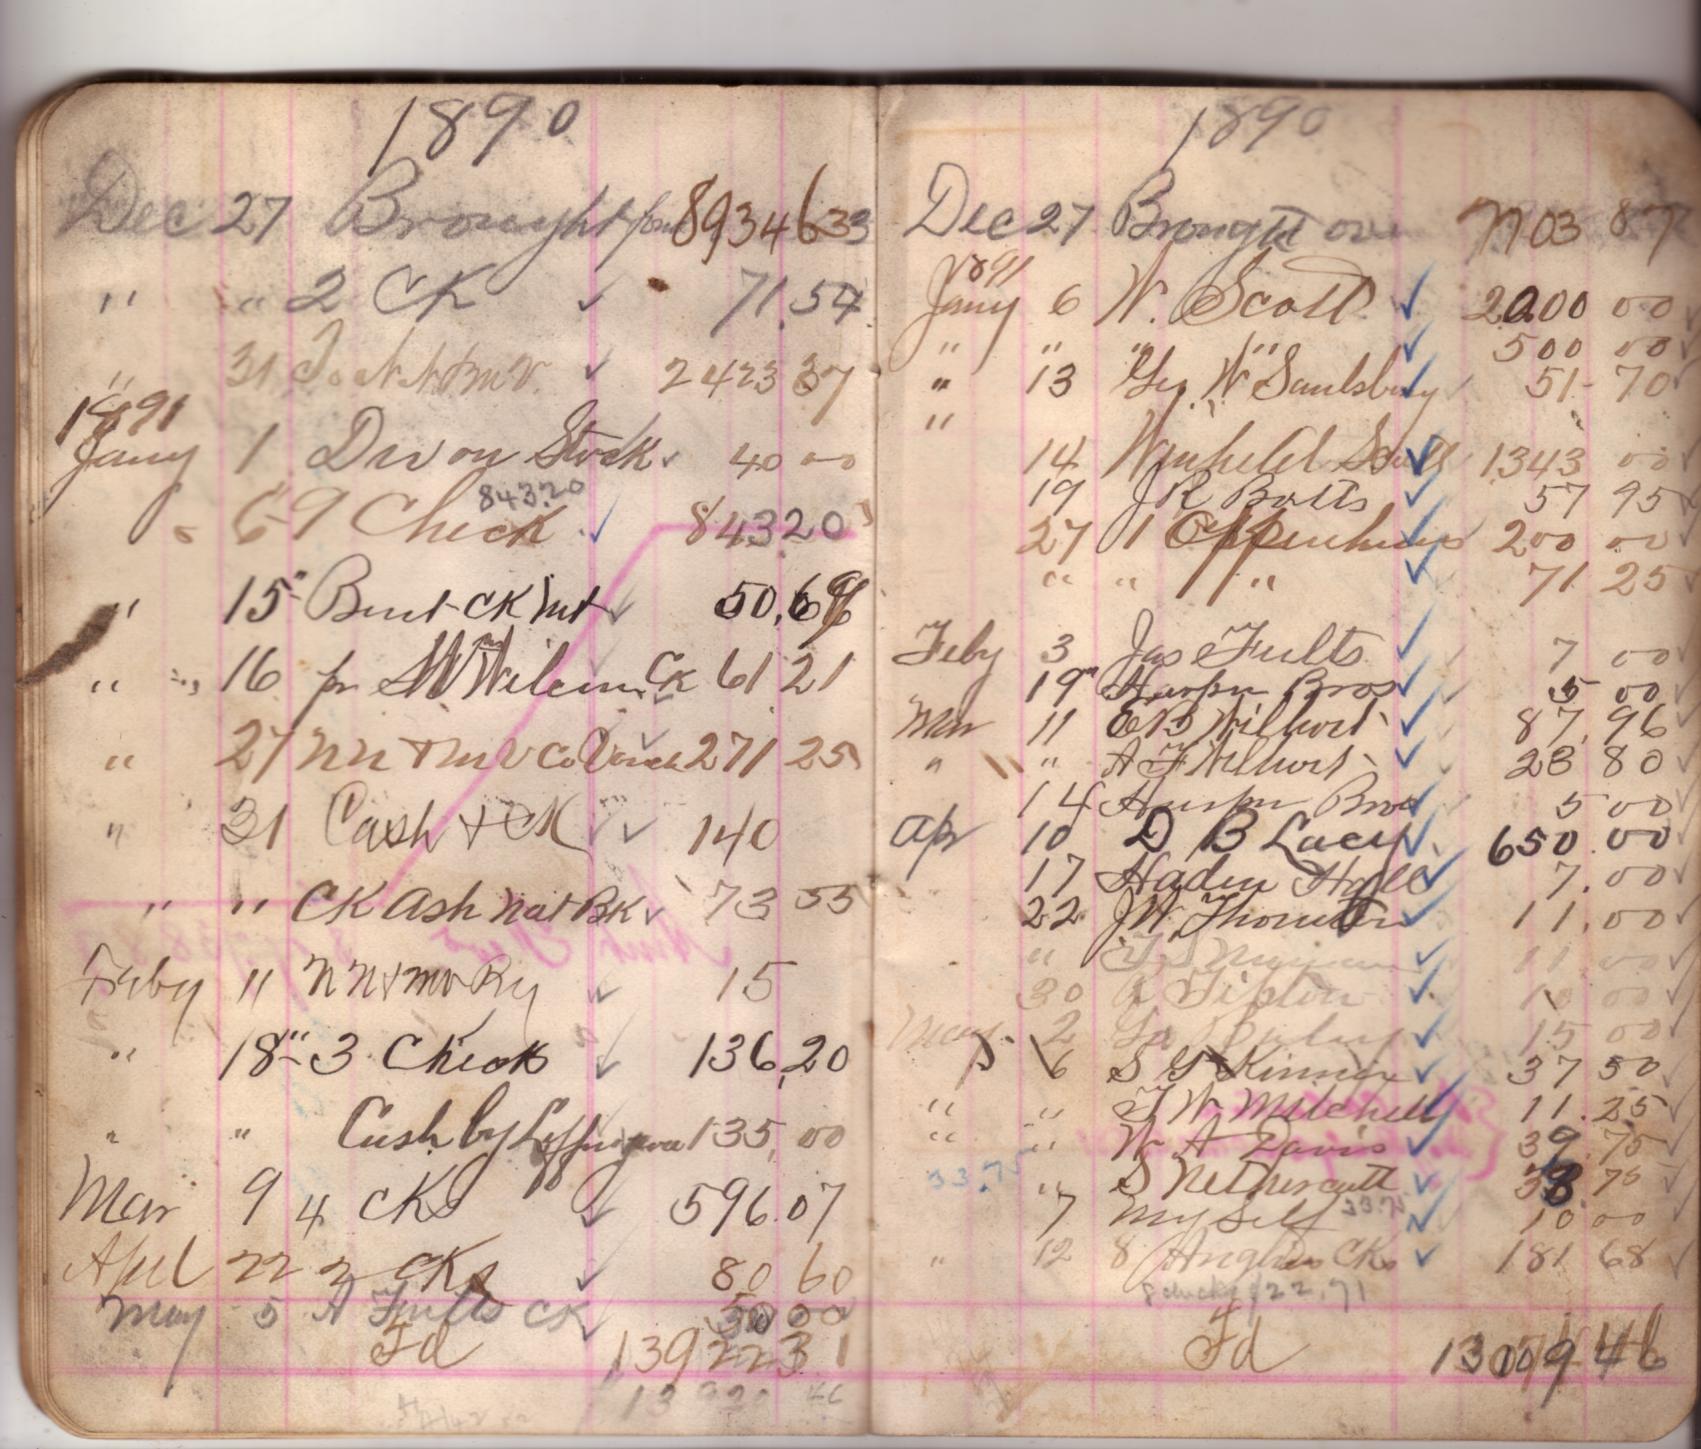 1890
Dec 27 Brought for 8934633
" " 2 CK 71.54
" 31 2423 37
1891
Jany 1 Div on Stock 40 00
84320
" 69 Check 84320
" 15 CK 50,69
" 16 pr CK 61 21
" 27 NN & MV Co 271 25
" 31 Cash & CK 140
" " CK Ash Nat BK 73 55
Feby 11 NN & MV Ry 15
" 18 3 Checks 136,20
" " Cash by 135,00
Mar 9 4 CKs 596.07
Apl 22 2 CKs 80 60
May 5 A Fults CK 50 00
Fd 1392231
1890
Dec 27 Brought over 7703 87
1891
Jany 6 W. Scott 2000 00
" " " " 500 00
" 13 Geo W Saulsbury 51 70
"
14 Winfield Scott 1343 00
19 J R Botts 57 95
27 200 00
" " " 71 25
Feby 3 Jas Fults 7 00
19 Harper Bros 5 00
Mar 11 E B Wilhoit 87.96
" " A F Wilhoit 23 80
14 Harper Bros 5 00
Apr 10 D B Lacy 650.00
17 Haden Hall 7.00
22 J W Thornton 11.00
" 11 00
30 Tipton 10 00
May 2 15 00
6 S G Kinner 37 50
" " T W Mitchell 11.25
" " W A Davis 39.75
33.75 " S Nethercutt 33 75
7 My Self 33.75 10 00
" 12 8 CKs 181 68
8 checks 122,71
Fd 46